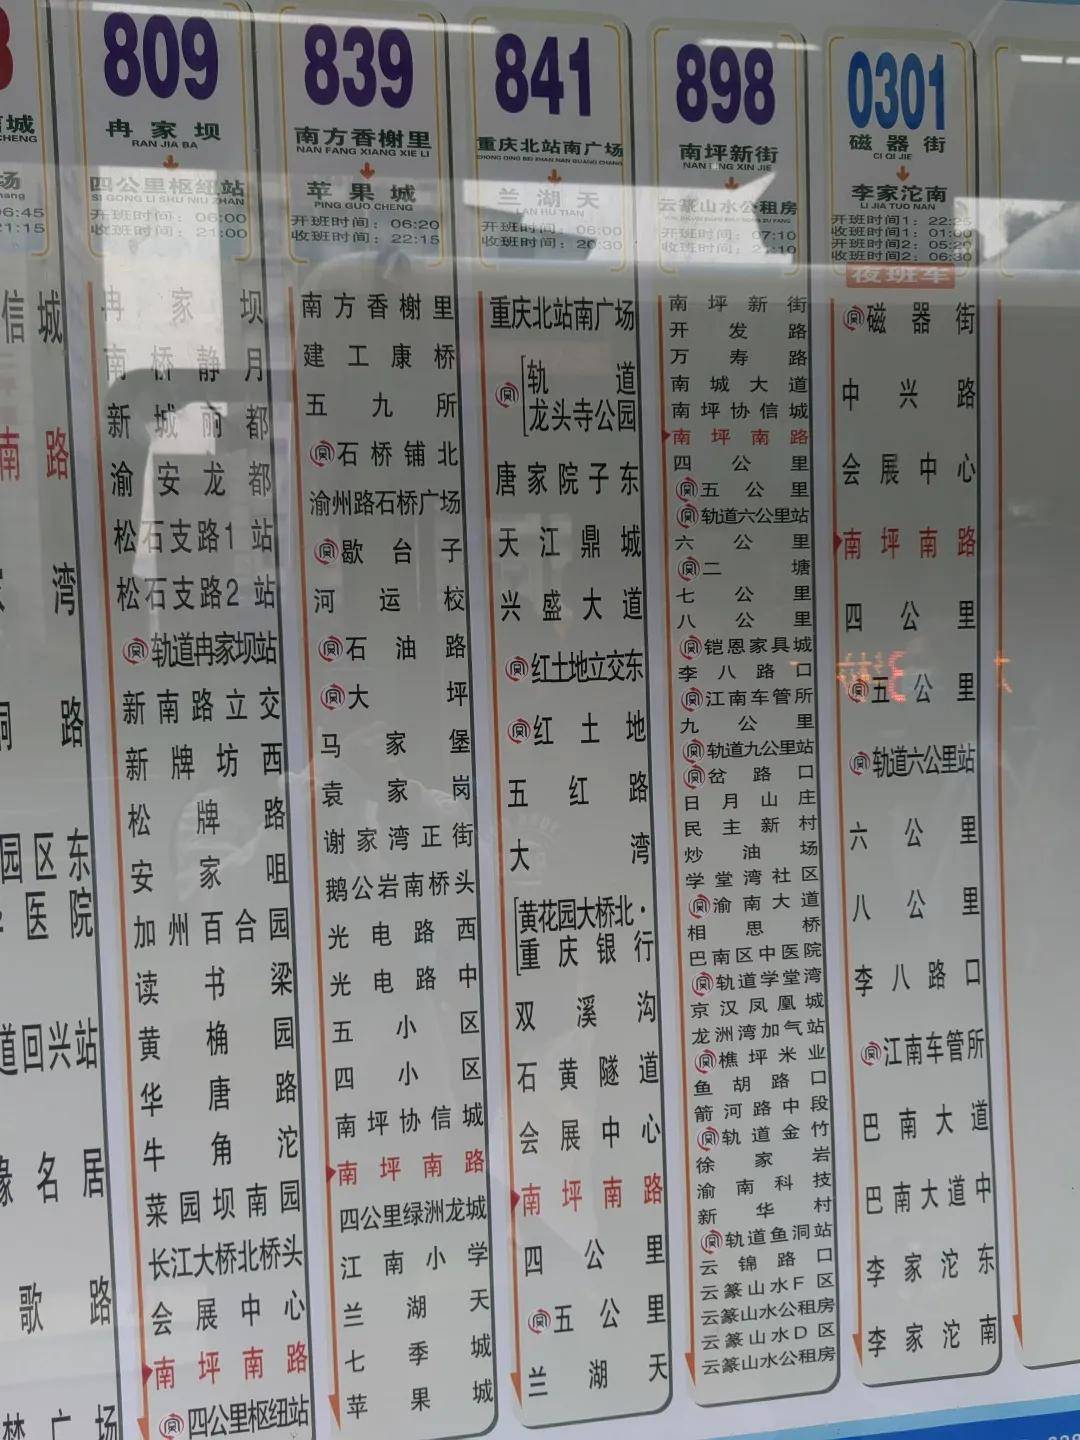 809
冉家坝
RAN JIA BA
四公里枢纽站
SI GONG LI SHU NIU ZHAN
开班时间：06:00
收班时间：21:00
冉家坝
南桥静月
新城丽都
渝安龙都
松石支路1站
松石支路2站
轨道冉家坝站
新南路立交
新牌坊西
松牌路
安家咀
加州百合园
读书梁
黄桷园
华唐路
牛角沱
菜园坝南园
长江大桥北桥头
会展中心
南坪南路
四公里枢纽站
839
南方香榭里
NAN FANG XIANG XIE LI
苹果城
PING GUO CHENG
开班时间：06:20
收班时间：22:15
南方香榭里
建工康桥
五九所
石桥铺北
渝州路石桥广场
歇台子
河运校
石油路
大坪
马家堡
袁家岗
谢家湾正街
鹅公岩南桥头
光电路西
光电路中
五小区
四小区
南坪协信城
南坪南路
四公里绿洲龙城
江南小学
兰湖天
七季城
苹果城
841
重庆北站南广场
CHONG QING BEI ZHAN NAN GUANG CHANG
兰湖天
LAN HU TIAN
开班时间：06:00
收班时间：20:30
重庆北站南广场
轨道
龙头寺公园
唐家院子东
天江鼎城
兴盛大道
红土地立交东
红土地
五红路
大湾
黄花园大桥北·
重庆银行
双溪沟
石黄隧道
会展中心
南坪南路
四公里
五公里
兰湖天
898
南坪新街
NAN PING XIN JIE
云篆山水公租房
开班时间：07:10
南坪新街
开发路
万寿路
南城大道
南坪协信城
南坪南路
四公里
五公里
轨道六公里站
六公里
二塘
七公里
八公里
铠恩家具城
李八路口
江南车管所
九公里
轨道九公里站
岔路口
日月山庄
民主新村
炒油场
学堂湾社区
渝南大道
相思桥
巴南区中医院
轨道学堂湾
京汉凤凰城
龙洲湾加气站
樵坪米业
鱼胡路口
箭河路中段
轨道金竹
徐家岩
渝南科技
新华村
轨道鱼洞站
云锦路口
云篆山水F区
云篆山水公租房
云篆山水D区
云篆山水公租房
0301
磁器街
CI QI JIE
李家沱南
LI JIA TUO NAN
开班时间1：22:25
收班时间1：01:00
开班时间2：05:20
收班时间2：06:30
夜班车
磁器街
中兴路
会展中心
南坪南路
四公里
五公里
轨道六公里站
六公里
八公里
李八路口
江南车管所
巴南大道
巴南大道中
李家沱东
李家沱南